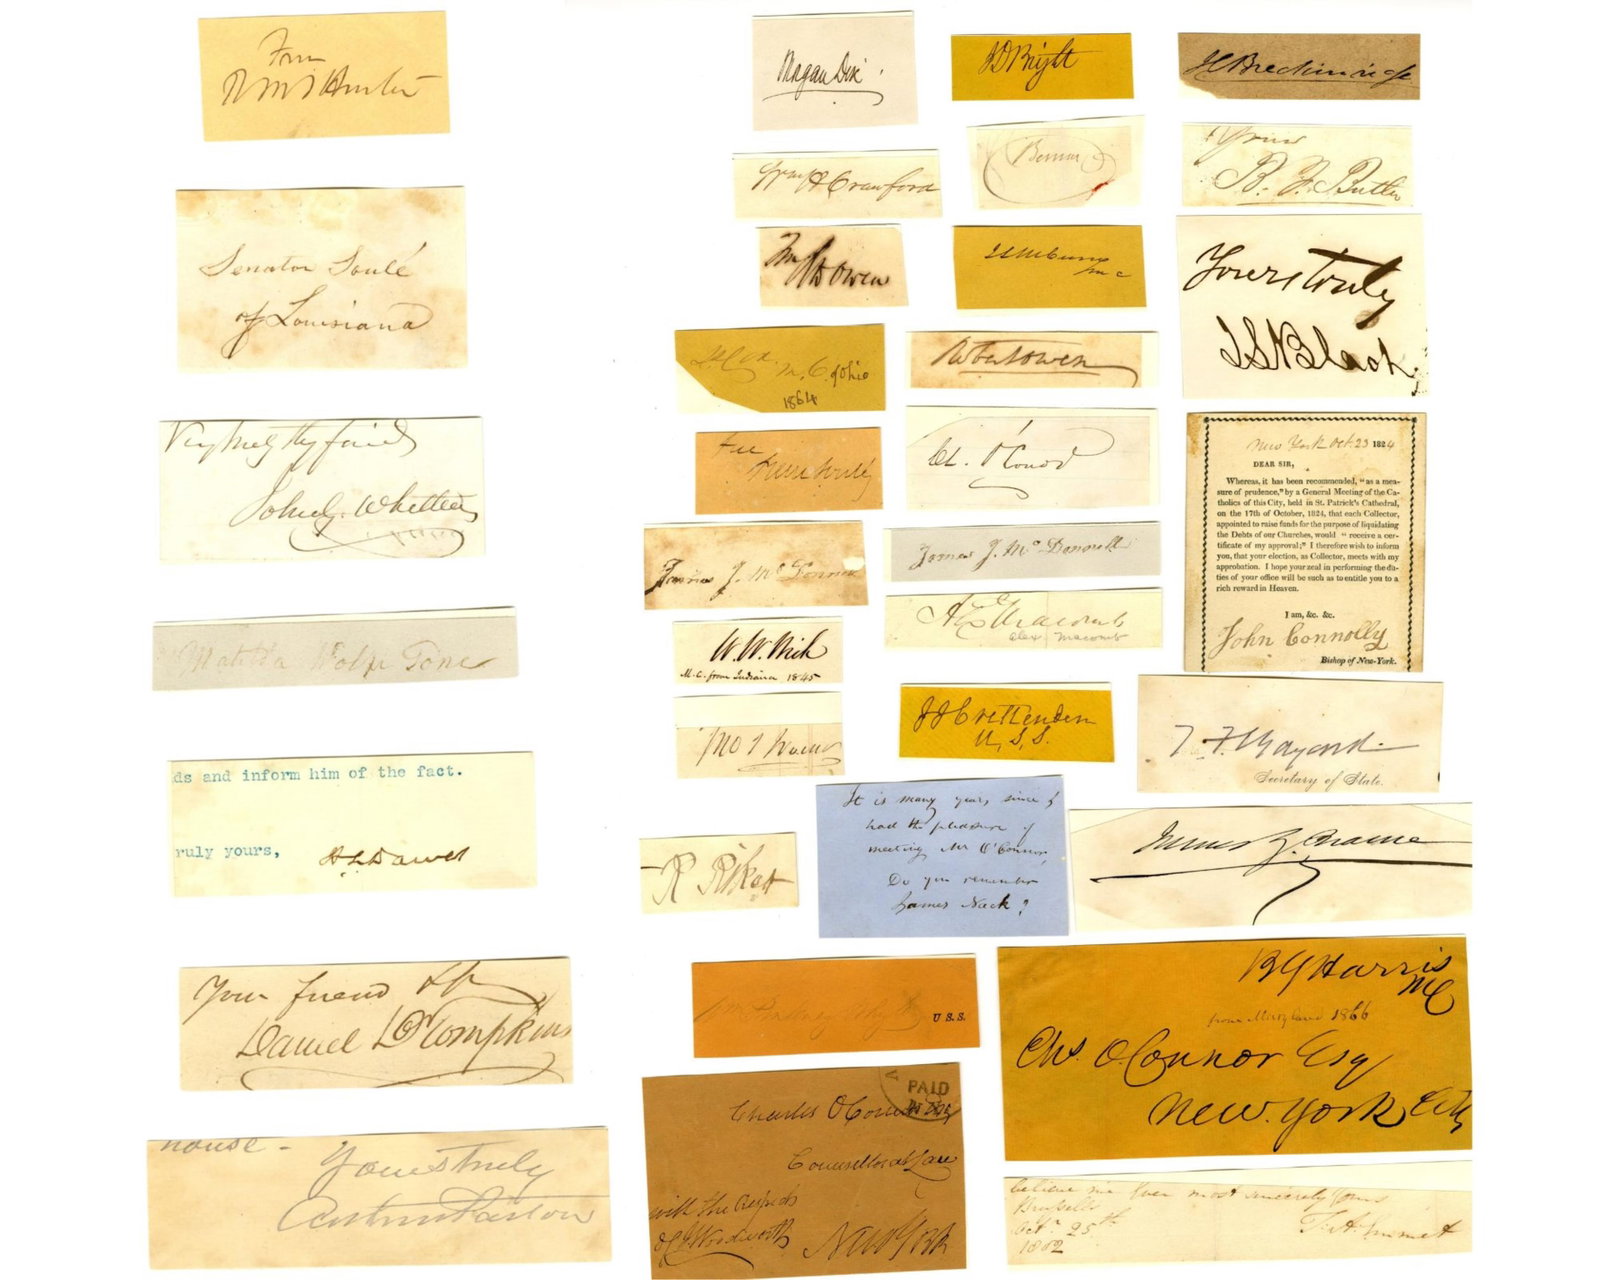 From
R M T Hunter
Senator Soulé
of Louisiana
Very truly thy friend
John G. Whittier
Matilda Wolfe Tone
ds and inform him of the fact.
ruly yours,
H L Dawes
Your friend
Daniel D Tompkins
house -
Yours truly
Morgan Dix
J D Bright
J C Breckinridge
Wm H Crawford
Yours
B. F. Butler
Wm
Owen
M C
Yours truly
J S Black
M. C. of Ohio
1864
Robert Owen
Free
Pierre Soulé
Ch. O'Conor
New York Oct. 23 1824
DEAR SIR,
Whereas, it has been recommended, "as a mea-
sure of prudence," by a General Meeting of the Ca-
tholics of this City, held in St. Patrick's Cathedral,
on the 17th of October, 1824, that each Collector,
appointed to raise funds for the purpose of liquidating
the Debts of our Churches, would "receive a cer-
tificate of my approval;" I therefore wish to inform
you, that your election, as Collector, meets with my
approbation. I hope your zeal in performing the du-
ties of your office will be such as to entitle you to a
rich reward in Heaven.
I am, &c. &c.
John Connolly
Bishop of New-York.
James J. McDonnell
James J. McDonnell
Macomb
Alex Macomb
W. W. Wick
M. C. from Indiana 1845
J J Crittenden
U, S, S.
T. F. Bayard
Secretary of State.
R Riker
It is many years since I
had the pleasure of
meeting Mr O'Connor,
Do you remember
James Nack?
U S. S.
B G Harris
MC
from Maryland 1866
Chs. O Connor Esq
New York City
PAID
Charles O'Conor Esq
Counsellor at Law
with the respects
of S Woodworth
New York
believe me ever most sincerely yours
Brussells
Octr. 25th
1802
T. A. Emmet